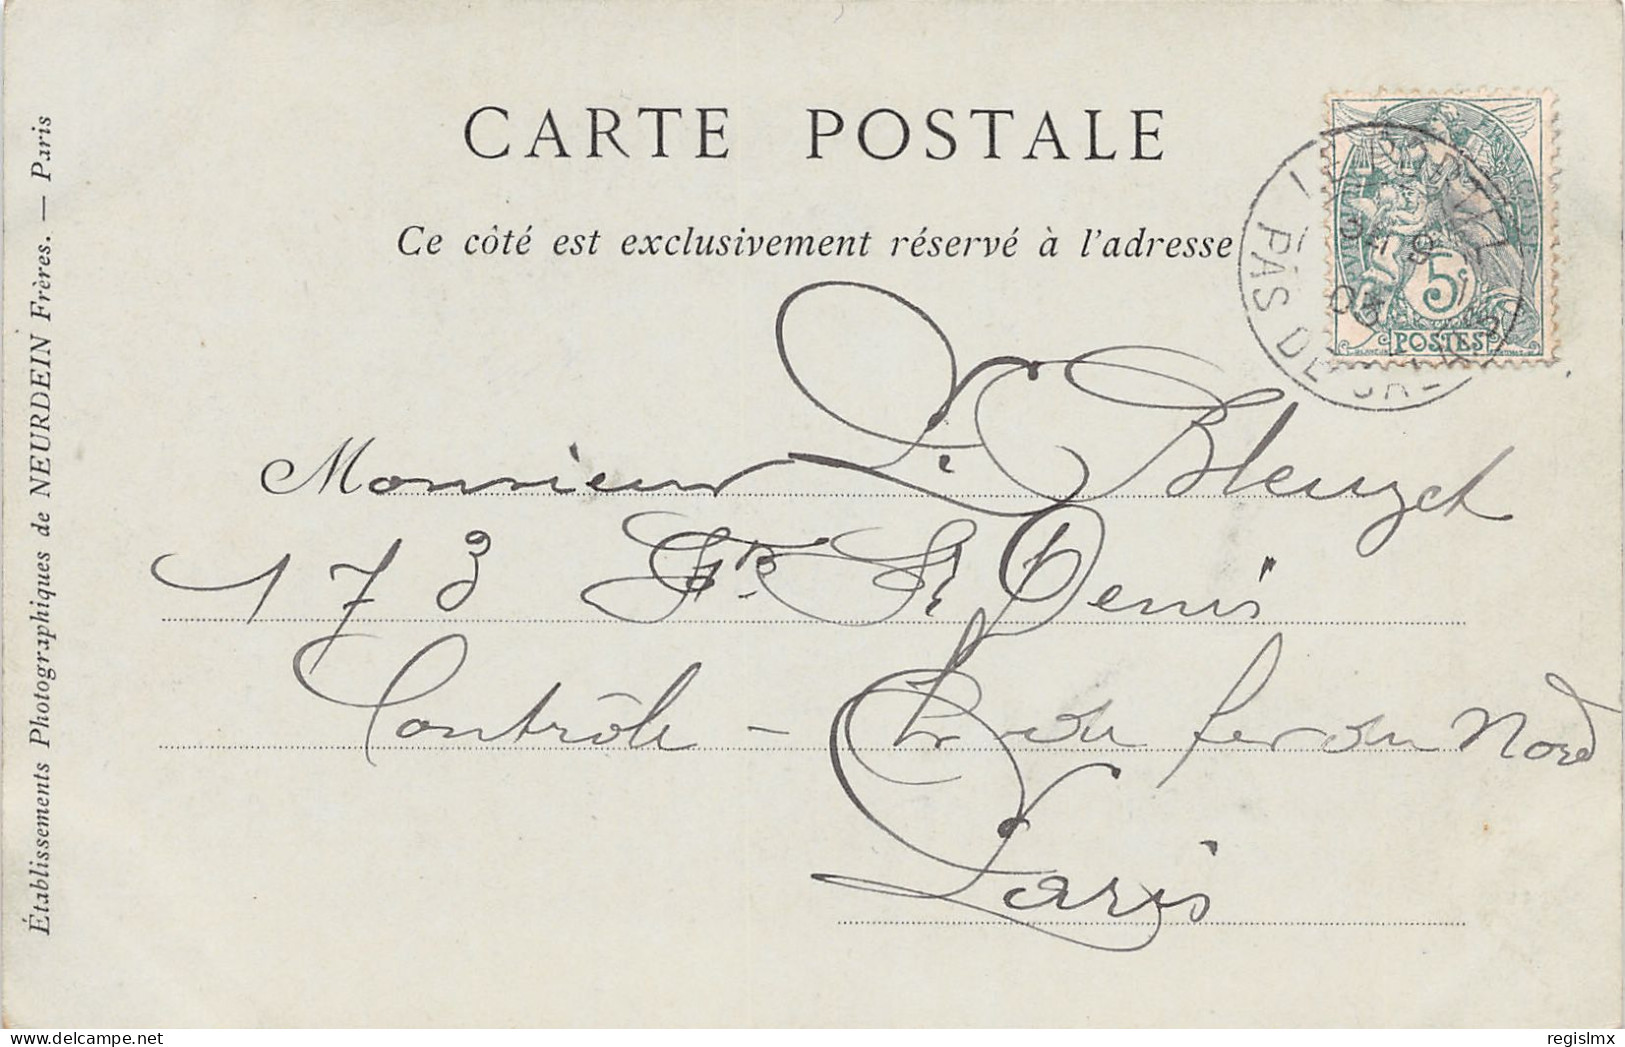 CARTE POSTALE
Ce côté est exclusivement réservé à l'adresse
Établissements Photographiques de NEURDEIN Frères. — Paris
LE PORTEL
9
03
PAS DE CALAIS
FRANÇAISE
5c
POSTES
Monsieur L. Bleuzet
173 Fg St Denis
Contrôle - fer du Nord
Paris
regislmx